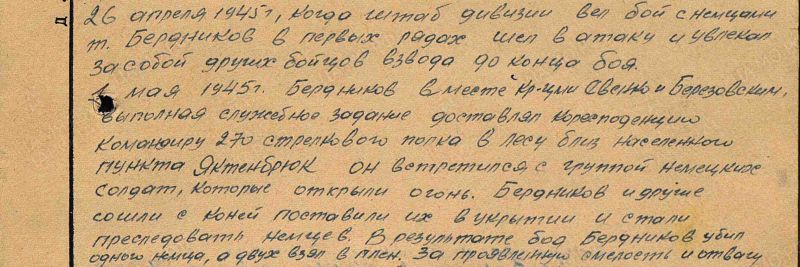 26 апреля 1945г, когда штаб дивизии вел бой с немцами
т. Бердников в первых рядах шел в атаку и увлекал
за собой других бойцов взвода до конца боя.
1 мая 1945г. Бердников вместе кр-цами Овенко и Березовским,
выполная служебное задание доставлял кореспонденцию
командиру 270 стрелкового полка в лесу близ населенного
пункта Яктенбрюк он встретился с группой немецких
солдат, которые открыли огонь. Бердников и другие
сошли с коней поставили их в укрытии и стали
преследовать немцев. В результате боя Бердников убил
одного немца, а двух взял в плен. За проявленную смелость и отвагу
Д